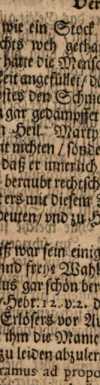 Ver
wie ein Stock
chts weh getha
hätte die Mensch
eit angefüllet / d
stes den Schme
gar gedämpffet
Heil. Marty
it nichten / sonde
daß er innerlich
beraubt rechtsch
ers mit diesem
beuten / und zu
ß war sein einig
und freye Wahl
us gar schön ber
Hebr. 12. v. 2. de
Erlösers vor A
ihm die Manie
zu leiden abzuler
ramus ad propo